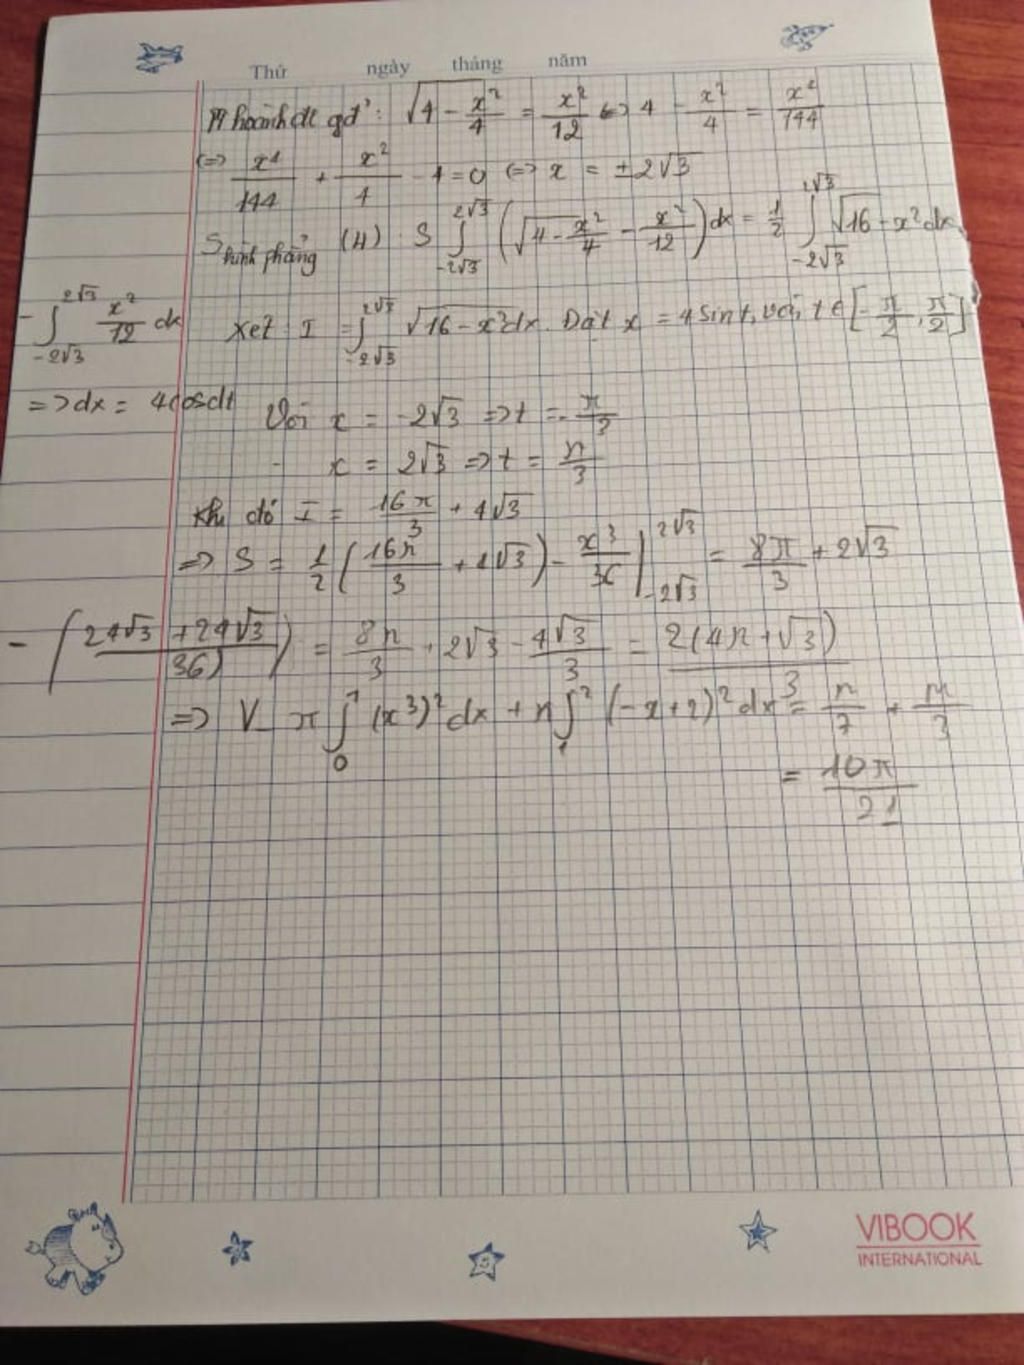 Thứ ngày tháng năm
Pt hoành độ gđ: √(4 - x²/4) = x²/12 <=> 4 - x²/4 = x⁴/144
<=> x⁴/144 + x²/4 - 4 = 0 <=> x = ±2√3
S hình phẳng (H): S ∫_{-2√3}^{2√3} (√(4 - x²/4) - x²/12) dx = 1/2 ∫_{-2√3}^{2√3} √(16 - x²) dx
- ∫_{-2√3}^{2√3} x²/12 dx Xét I = ∫_{-2√3}^{2√3} √(16 - x²) dx. Đặt x = 4 sin t, với t ∈ [-π/2, π/2]
=> dx = 4cos dt Với x = -2√3 => t = -π/3
x = 2√3 => t = π/3
Khi đó I = 16π/3 + 4√3
=> S = 1/2 (16π/3 + 4√3) - x³/36 |_{-2√3}^{2√3} = 8π/3 + 2√3
- ((24√3 + 24√3)/36) = 8π/3 + 2√3 - 4√3/3 = 2(4π + √3)/3
=> V = π ∫_0^1 (x³)² dx + π ∫_1^2 (-x+2)² dx = π/7 + π/3
= 10π/21
VIBOOK
INTERNATIONAL